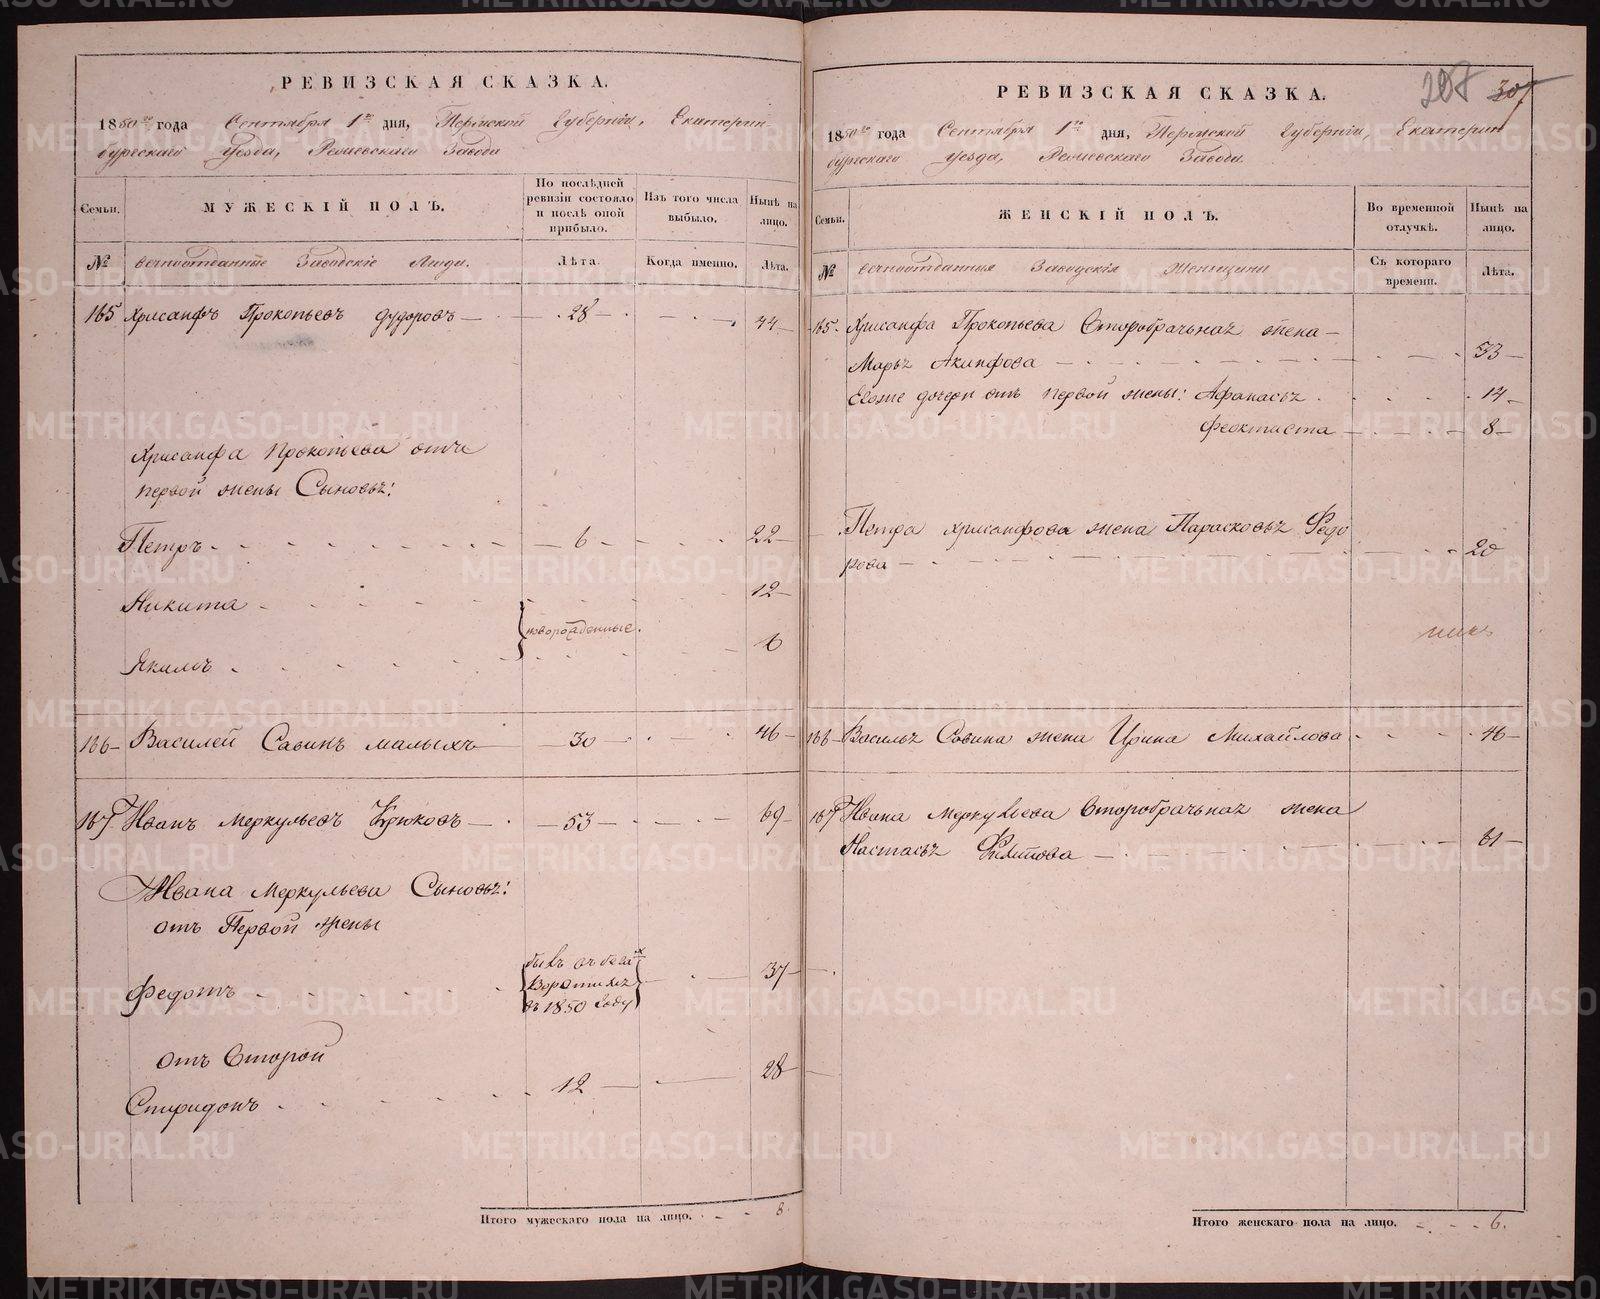 РЕВИЗСКАЯ СКАЗКА.
1850го года Сентября 1го дня, Пермской Губернии, Екатерин-
бургскаго Уезда, Ревдевскаго Завода
Семьи.
МУЖЕСКІЙ ПОЛЪ.
По послѣдней ревизіи состояло и послѣ оной прибыло.
Изъ того числа выбыло.
Нынѣ на лицо.
№
вечноотданные Заводскіе Люди.
Лѣта.
Когда именно.
Лѣта.
165 Хрисанфъ Прокопьевъ Дудоровъ 28 44
Хрисанфа Прокопьева отъ
первой жены Сыновья:
Петръ 6 22
Никита 12
новорожденные.
Якимъ 6
166 Василей Савинъ Малыхъ 30 46
167 Иванъ Меркульевъ Крюковъ 53 69
Ивана Меркульева Сыновья:
отъ Первой жены
Федотъ 37
бывъ въ бегахъ
Воротился
въ 1850 году
отъ Второй
Спиридонъ 12 28
Итого мужескаго пола на лицо. 8.
208 307
РЕВИЗСКАЯ СКАЗКА.
1850го года Сентября 1го дня, Пермской Губерніи, Екатерин
бургскаго уезда, Ревдевскаго Завода.
Семьи.
ЖЕНСКІЙ ПОЛЪ.
Во временной отлучкѣ.
Нынѣ на лицо.
№
вечноотданныя Заводскія Женщины
Съ котораго времени.
Лѣта.
165. Хрисанфа Прокопьева Второбрачная жена
Марья Акинфова 53
Евоже дочери отъ первой жены: Афанасья 14
Феоктиста 8
Петра Хрисанфова жена Парасковья Федо
рова 20
166 Василья Савина жена Ирина Михайлова 46
167 Ивана Меркульева Второбрачная жена
Настасья Филипова 61
Итого женскаго пола на лицо. 6.
METRIKI.GASO-URAL.RU